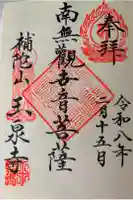 奉拝
令和八年
二月十五日
南無觀世音菩薩
補陀山
玉泉寺